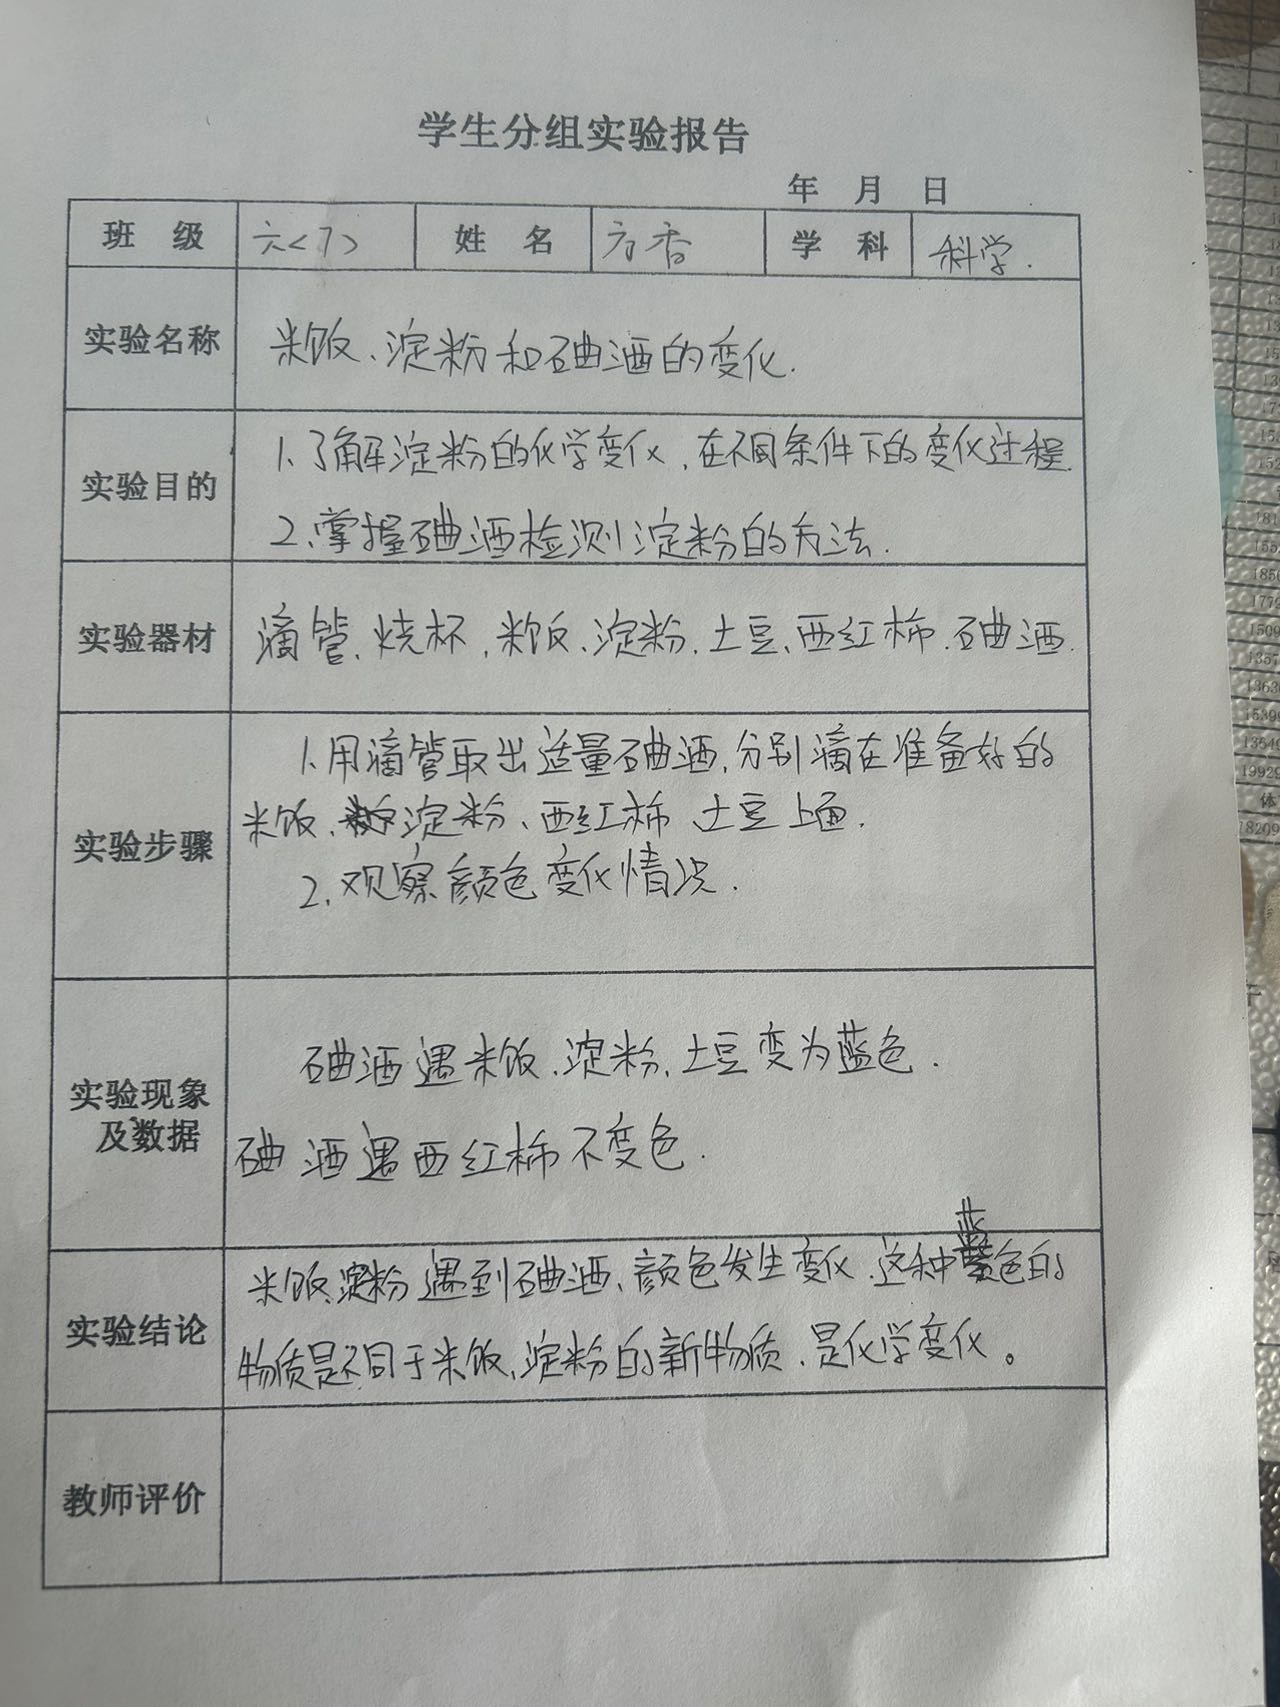 学生分组实验报告
年 月 日
班 级 六<7> 姓 名 方香 学 科 科学.
实验名称 米饭、淀粉和碘酒的变化.
实验目的 1、了解淀粉的化学变化,在不同条件下的变化过程
2、掌握碘酒检测淀粉的方法.
实验器材 滴管、烧杯,米饭、淀粉,土豆、西红柿.碘酒.
实验步骤 1、用滴管取出适量碘酒,分别滴在准备好的
米饭、淀粉、西红柿、土豆上面.
2、观察颜色变化情况.
实验现象及数据 碘酒遇米饭、淀粉、土豆变为蓝色.
碘酒遇西红柿不变色.
实验结论 米饭、淀粉遇到碘酒、颜色发生变化、这种蓝色的
物质是不同于米饭、淀粉的新物质、是化学变化。
教师评价